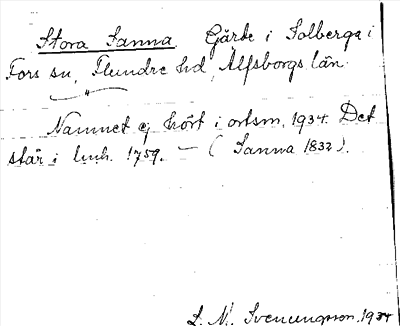 Stora Sanna. Gärde i Solberga i
Fors sn, Flundre hd, Älfsborgs län.
Namnet ej hört i ortsm. 1934. Det
står i lmh. 1759. — ( Sanna 1832 ).
L. M. Svenungsson, 1934